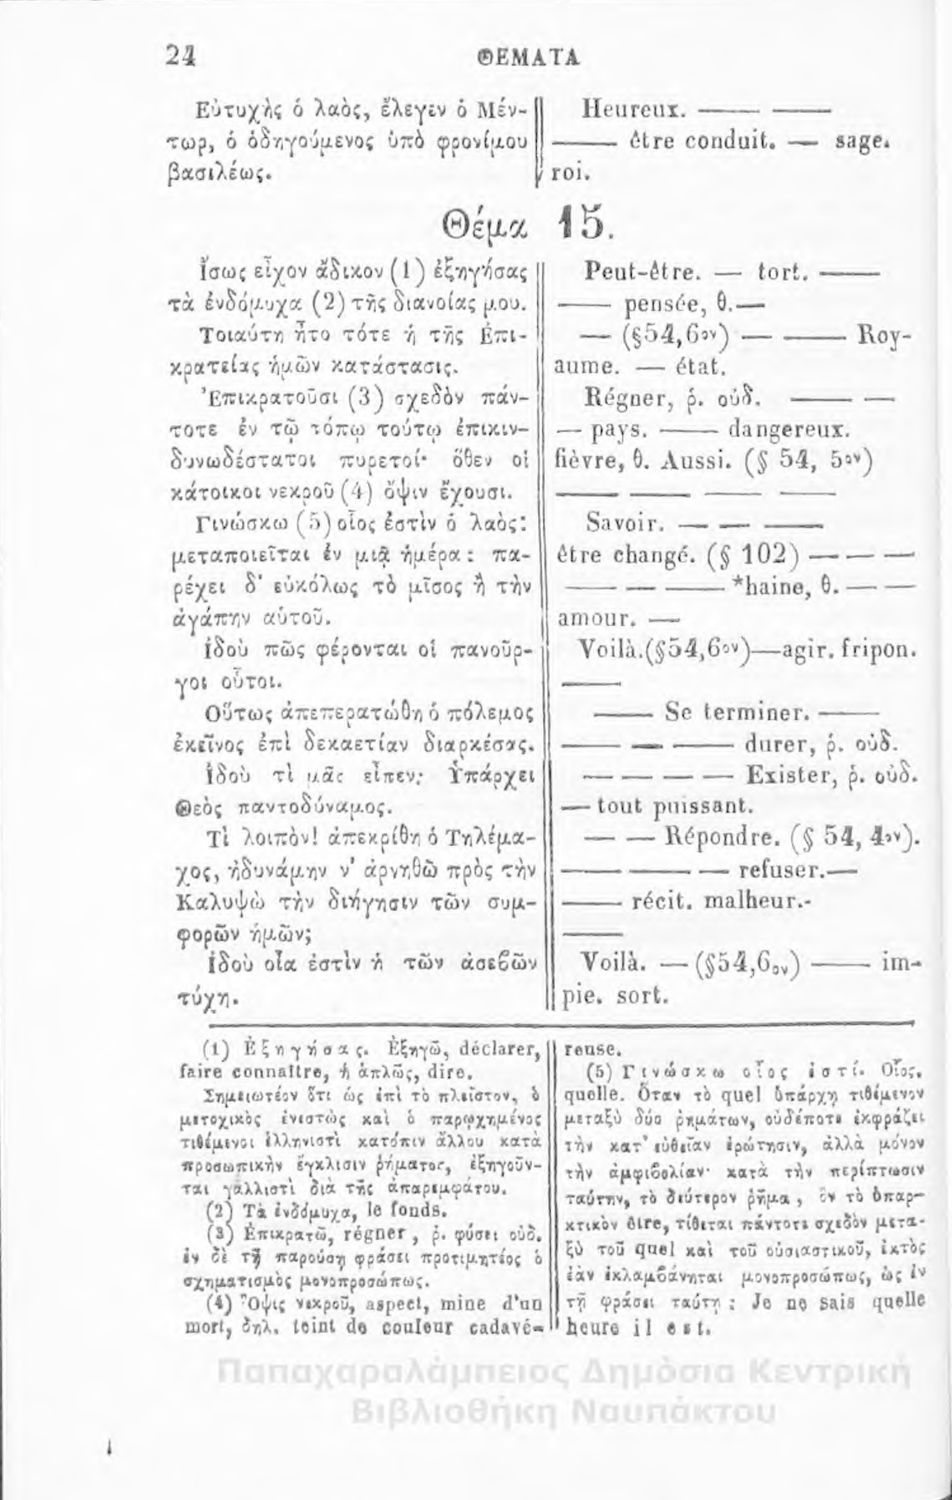 24 ΘΕΜΑΤΑ
Εὐτυχὴς ὁ λαὸς, ἔλεγεν ὁ Μέν-
τωρ, ὁ ὁδηγούμενος ὑπὸ φρονίμου
βασιλέως.
Heureux. ——— ———
——— être conduit. — sage.
roi.
Θέμα 15.
Ἴσως εἶχον ἄδικον (1) ἐξηγήσας
τὰ ἐνδόμυχα (2) τῆς διανοίας μου.
Τοιαύτη ἦτο τότε ἡ τῆς Ἐπι-
κρατείας ἡμῶν κατάστασις.
Ἐπικρατοῦσι (3) σχεδὸν πάν-
τοτε ἐν τῷ τόπῳ τούτῳ ἐπικιν-
δυνωδέστατοι πυρετοί· ὅθεν οἱ
κάτοικοι νεκροῦ (4) ὄψιν ἔχουσι.
Γινώσκω (5) οἷος ἐστὶν ὁ λαὸς:
μεταποιεῖται ἐν μιᾷ ἡμέρᾳ: πα-
ρέχει δ' εὐκόλως τὸ μῖσος ἢ τὴν
ἀγάπην αὑτοῦ.
Ἰδοὺ πῶς φέρονται οἱ πανοῦρ-
γοι οὗτοι.
Οὕτως ἀπεπερατώθη ὁ πόλεμος
ἐκεῖνος ἐπὶ δεκαετίαν διαρκέσας.
Ἰδοὺ τὶ μᾶς εἶπεν; Ὑπάρχει
Θεὸς παντοδύναμος.
Τὶ λοιπὸν! ἀπεκρίθη ὁ Τηλέμα-
χος, ἠδυνάμην ν' ἀρνηθῶ πρὸς τὴν
Καλυψὼ τὴν διήγησιν τῶν συμ-
φορῶν ἡμῶν;
Ἰδοὺ οἵα ἐστὶν ἡ τῶν ἀσεβῶν
τύχη.
Peut-être. — tort. ———
——— pensée, θ. —
— (§54,6ον) — ——— Roy-
aume. — état.
Régner, ῥ. οὐδ. ——— —
— pays. ——— dangereux.
fièvre, θ. Aussi. (§ 54, 5ον)
——— —— ——— ———
Savoir. — — ———
être changé. (§ 102) — — —
——— — ——— *haine, θ. — —
amour. —
Voilà. (§54,6ον) — agir. fripon.
———
——— Se terminer. ———
——— — ——— durer, ῥ. οὐδ.
— — — — Exister, ῥ. οὐδ.
— tout puissant.
— — Répondre. (§ 54, 4ον).
——— ——— — refuser. —
——— récit. malheur. -
———
Voilà. — (§54,6ον) ——— im-
pie. sort.
(1) Ἐξηγήσας. Ἐξηγῶ, déclarer,
faire connaître, ἢ ἁπλῶς, dire.
Σημειωτέον ὅτι ὡς ἐπὶ τὸ πλεῖστον, ὁ
μετοχικὸς ἐνεστὼς καὶ ὁ παρῳχημένος
τιθέμενοι ἑλληνιστὶ κατόπιν ἄλλου κατὰ
προσωπικὴν ἔγκλισιν ῥήματος, ἐξηγοῦν-
ται γαλλιστὶ διὰ τῆς ἀπαρεμφάτου.
(2) Τὰ ἐνδόμυχα, le fonds.
(3) Ἐπικρατῶ, régner, ῥ. φύσει οὐδ.
ἐν δὲ τῇ παρούσῃ φράσει προτιμητέος ὁ
σχηματισμὸς μονοπροσώπως.
(4) Ὄψις νεκροῦ, aspect, mine d'un
mort, δηλ. teint de couleur cadavé-
reuse.
(5) Γινώσκω οἷος ἐστί. Οἷος,
quelle. Ὅταν τὸ quel ὑπάρχῃ τιθέμενον
μεταξὺ δύο ῥημάτων, οὐδέποτε ἐκφράζει
τὴν κατ' εὐθεῖαν ἐρώτησιν, ἀλλὰ μόνον
τὴν ἀμφιβολίαν· κατὰ τὴν περίπτωσιν
ταύτην, τὸ δεύτερον ῥῆμα, ὂν τὸ ὑπαρ-
κτικὸν être, τίθεται πάντοτε σχεδὸν μετα-
ξὺ τοῦ quel καὶ τοῦ οὐσιαστικοῦ, ἐκτὸς
ἐὰν ἐκλαμβάνηται μονοπροσώπως, ὡς ἐν
τῇ φράσει ταύτῃ: Je ne sais quelle
heure il est.
Παπαχαραλάμπειος Δημόσια Κεντρική
Βιβλιοθήκη Ναυπάκτου